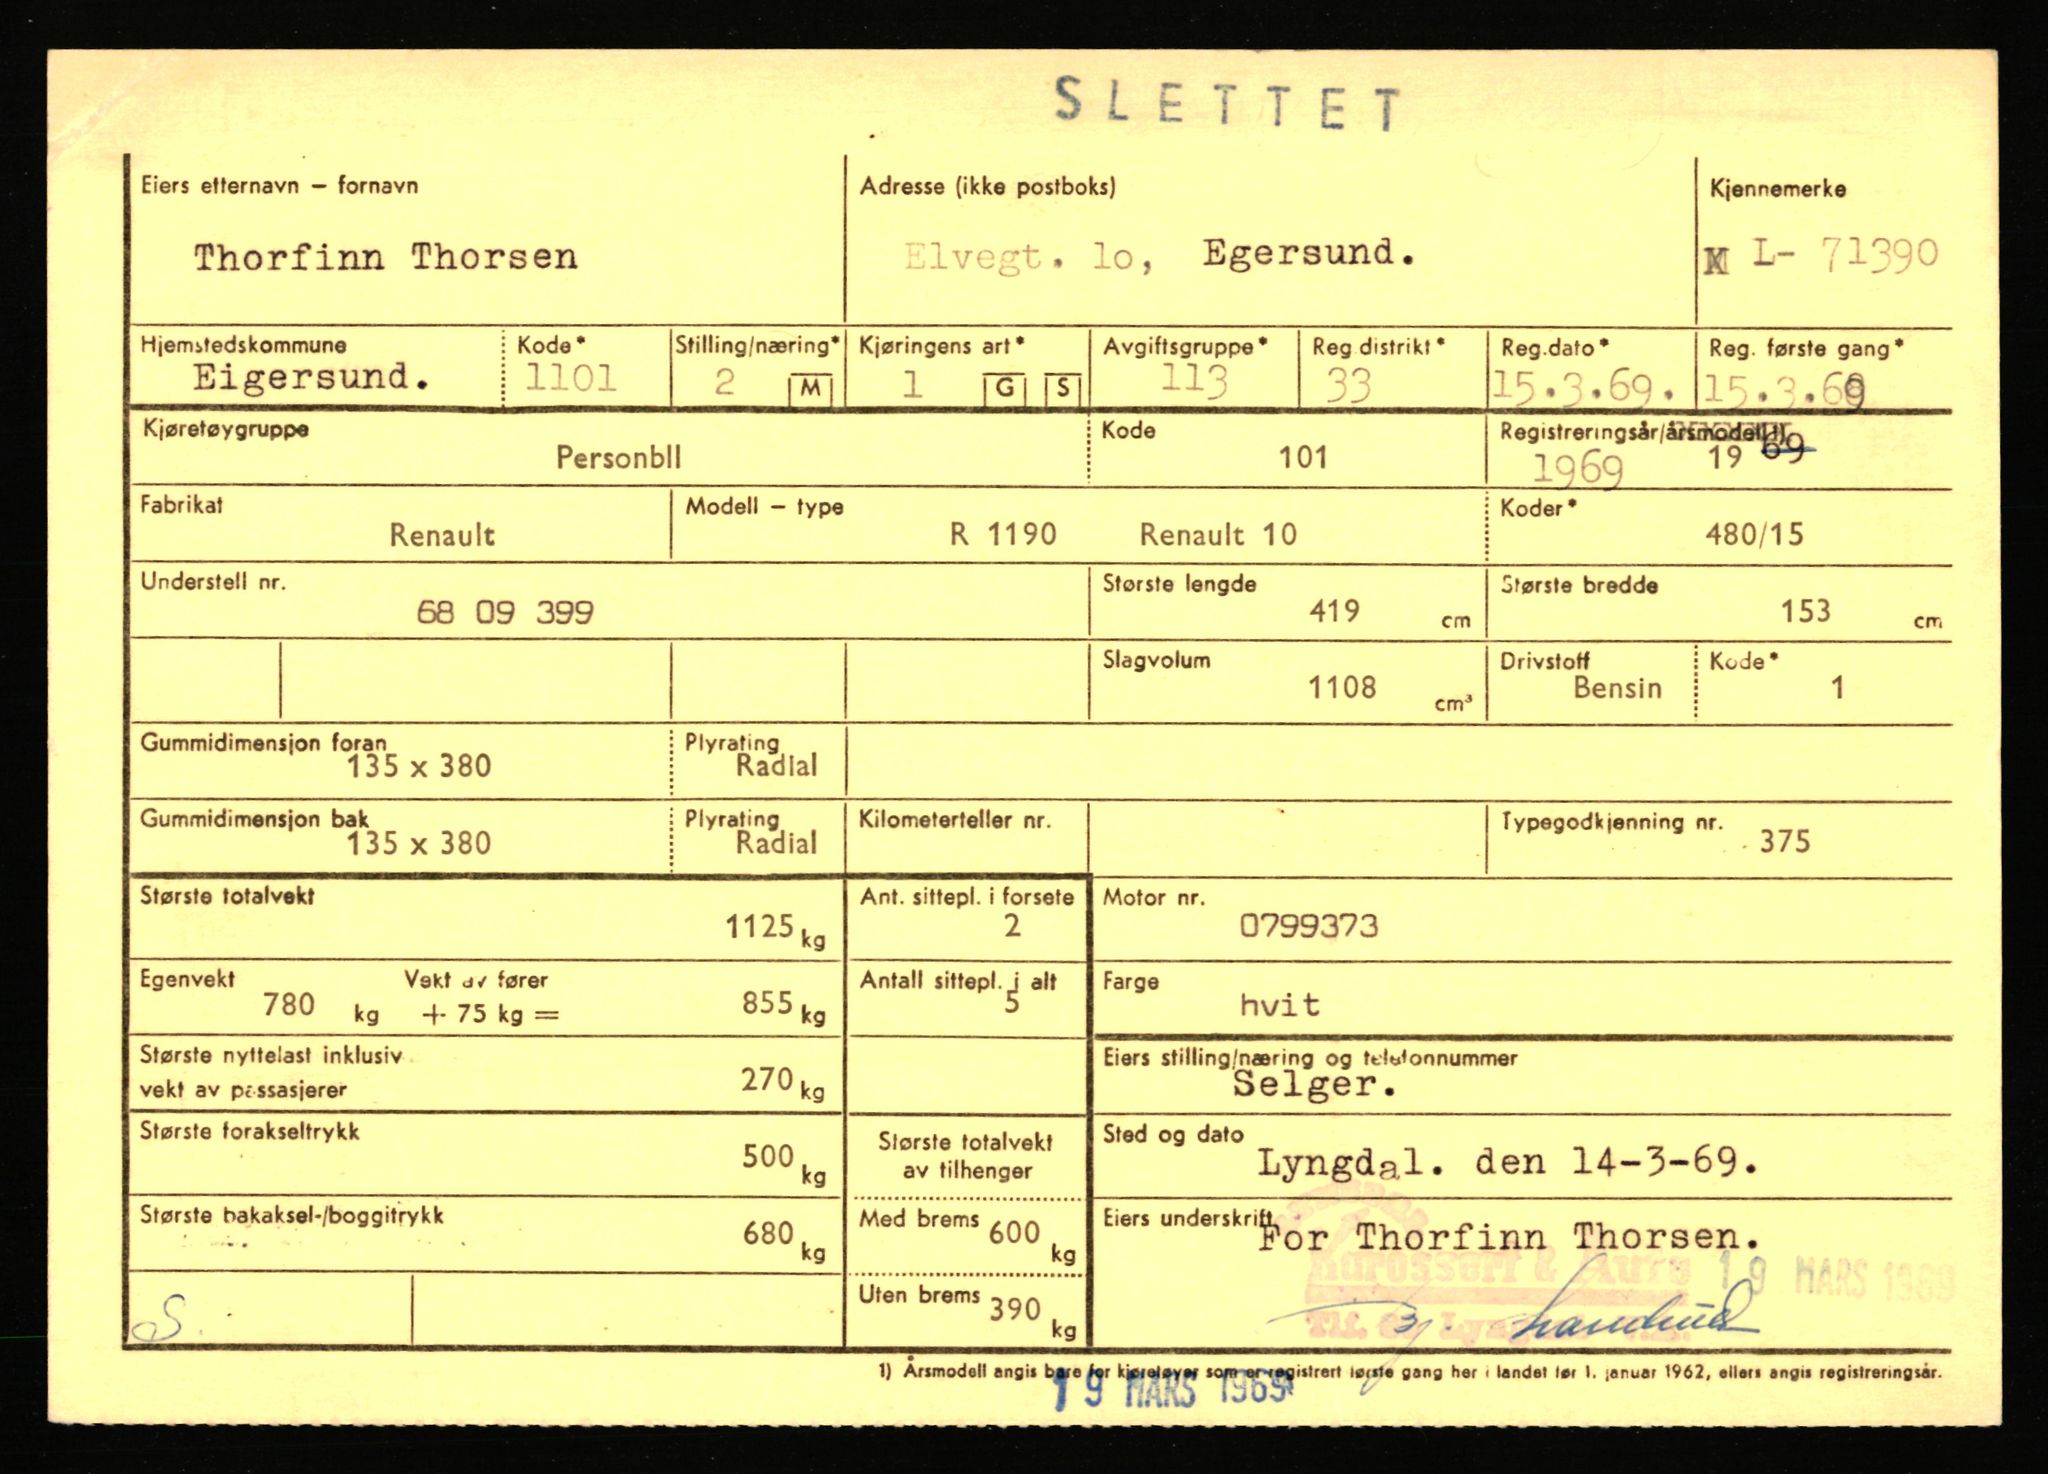 SLETTET
Eiers etternavn – fornavn
Thorfinn Thorsen
Adresse (ikke postboks)
Elvegt. lo, Egersund.
Kjennemerke
L- 71390
Hjemstedskommune
Eigersund.
Kode*
1101
Stilling/næring*
2 M
Kjøringens art*
1 G S
Avgiftsgruppe*
113
Reg.distrikt*
33
Reg.dato*
15.3.69.
Reg. første gang*
15.3.69
Kjøretøygruppe
Personbil
Kode
101
Registreringsår/årsmodell 1)
1969 19 69
Fabrikat
Renault
Modell – type
R 1190 Renault 10
Koder*
480/15
Understell nr.
68 09 399
Største lengde
419 cm
Største bredde
153 cm
Slagvolum
1108 cm³
Drivstoff
Bensin
Kode*
1
Gummidimensjon foran
135 x 380
Plyrating
Radial
Gummidimensjon bak
135 x 380
Plyrating
Radial
Kilometerteller nr.
Typegodkjenning nr.
375
Største totalvekt
1125 kg
Ant. sittepl. i forsete
2
Motor nr.
0799373
Egenvekt
780 kg
Vekt av fører
+ 75 kg =
855 kg
Antall sittepl. i alt
5
Farge
hvit
Største nyttelast inklusiv
vekt av passasjerer
270 kg
Eiers stilling/næring og telefonnummer
Selger.
Største forakseltrykk
500 kg
Største totalvekt
av tilhenger
Sted og dato
Lyngdal. den 14-3-69.
Største bakaksel-/boggitrykk
680 kg
Med brems 600 kg
Uten brems 390 kg
Eiers underskrift
For Thorfinn Thorsen.
Karosseri & Auto
19 MARS 1969
Tlf.
S.
1) Årsmodell angis bare for kjøretøyer som er registrert første gang her i landet før 1. januar 1962, ellers angis registreringsår.
19 MARS 1969